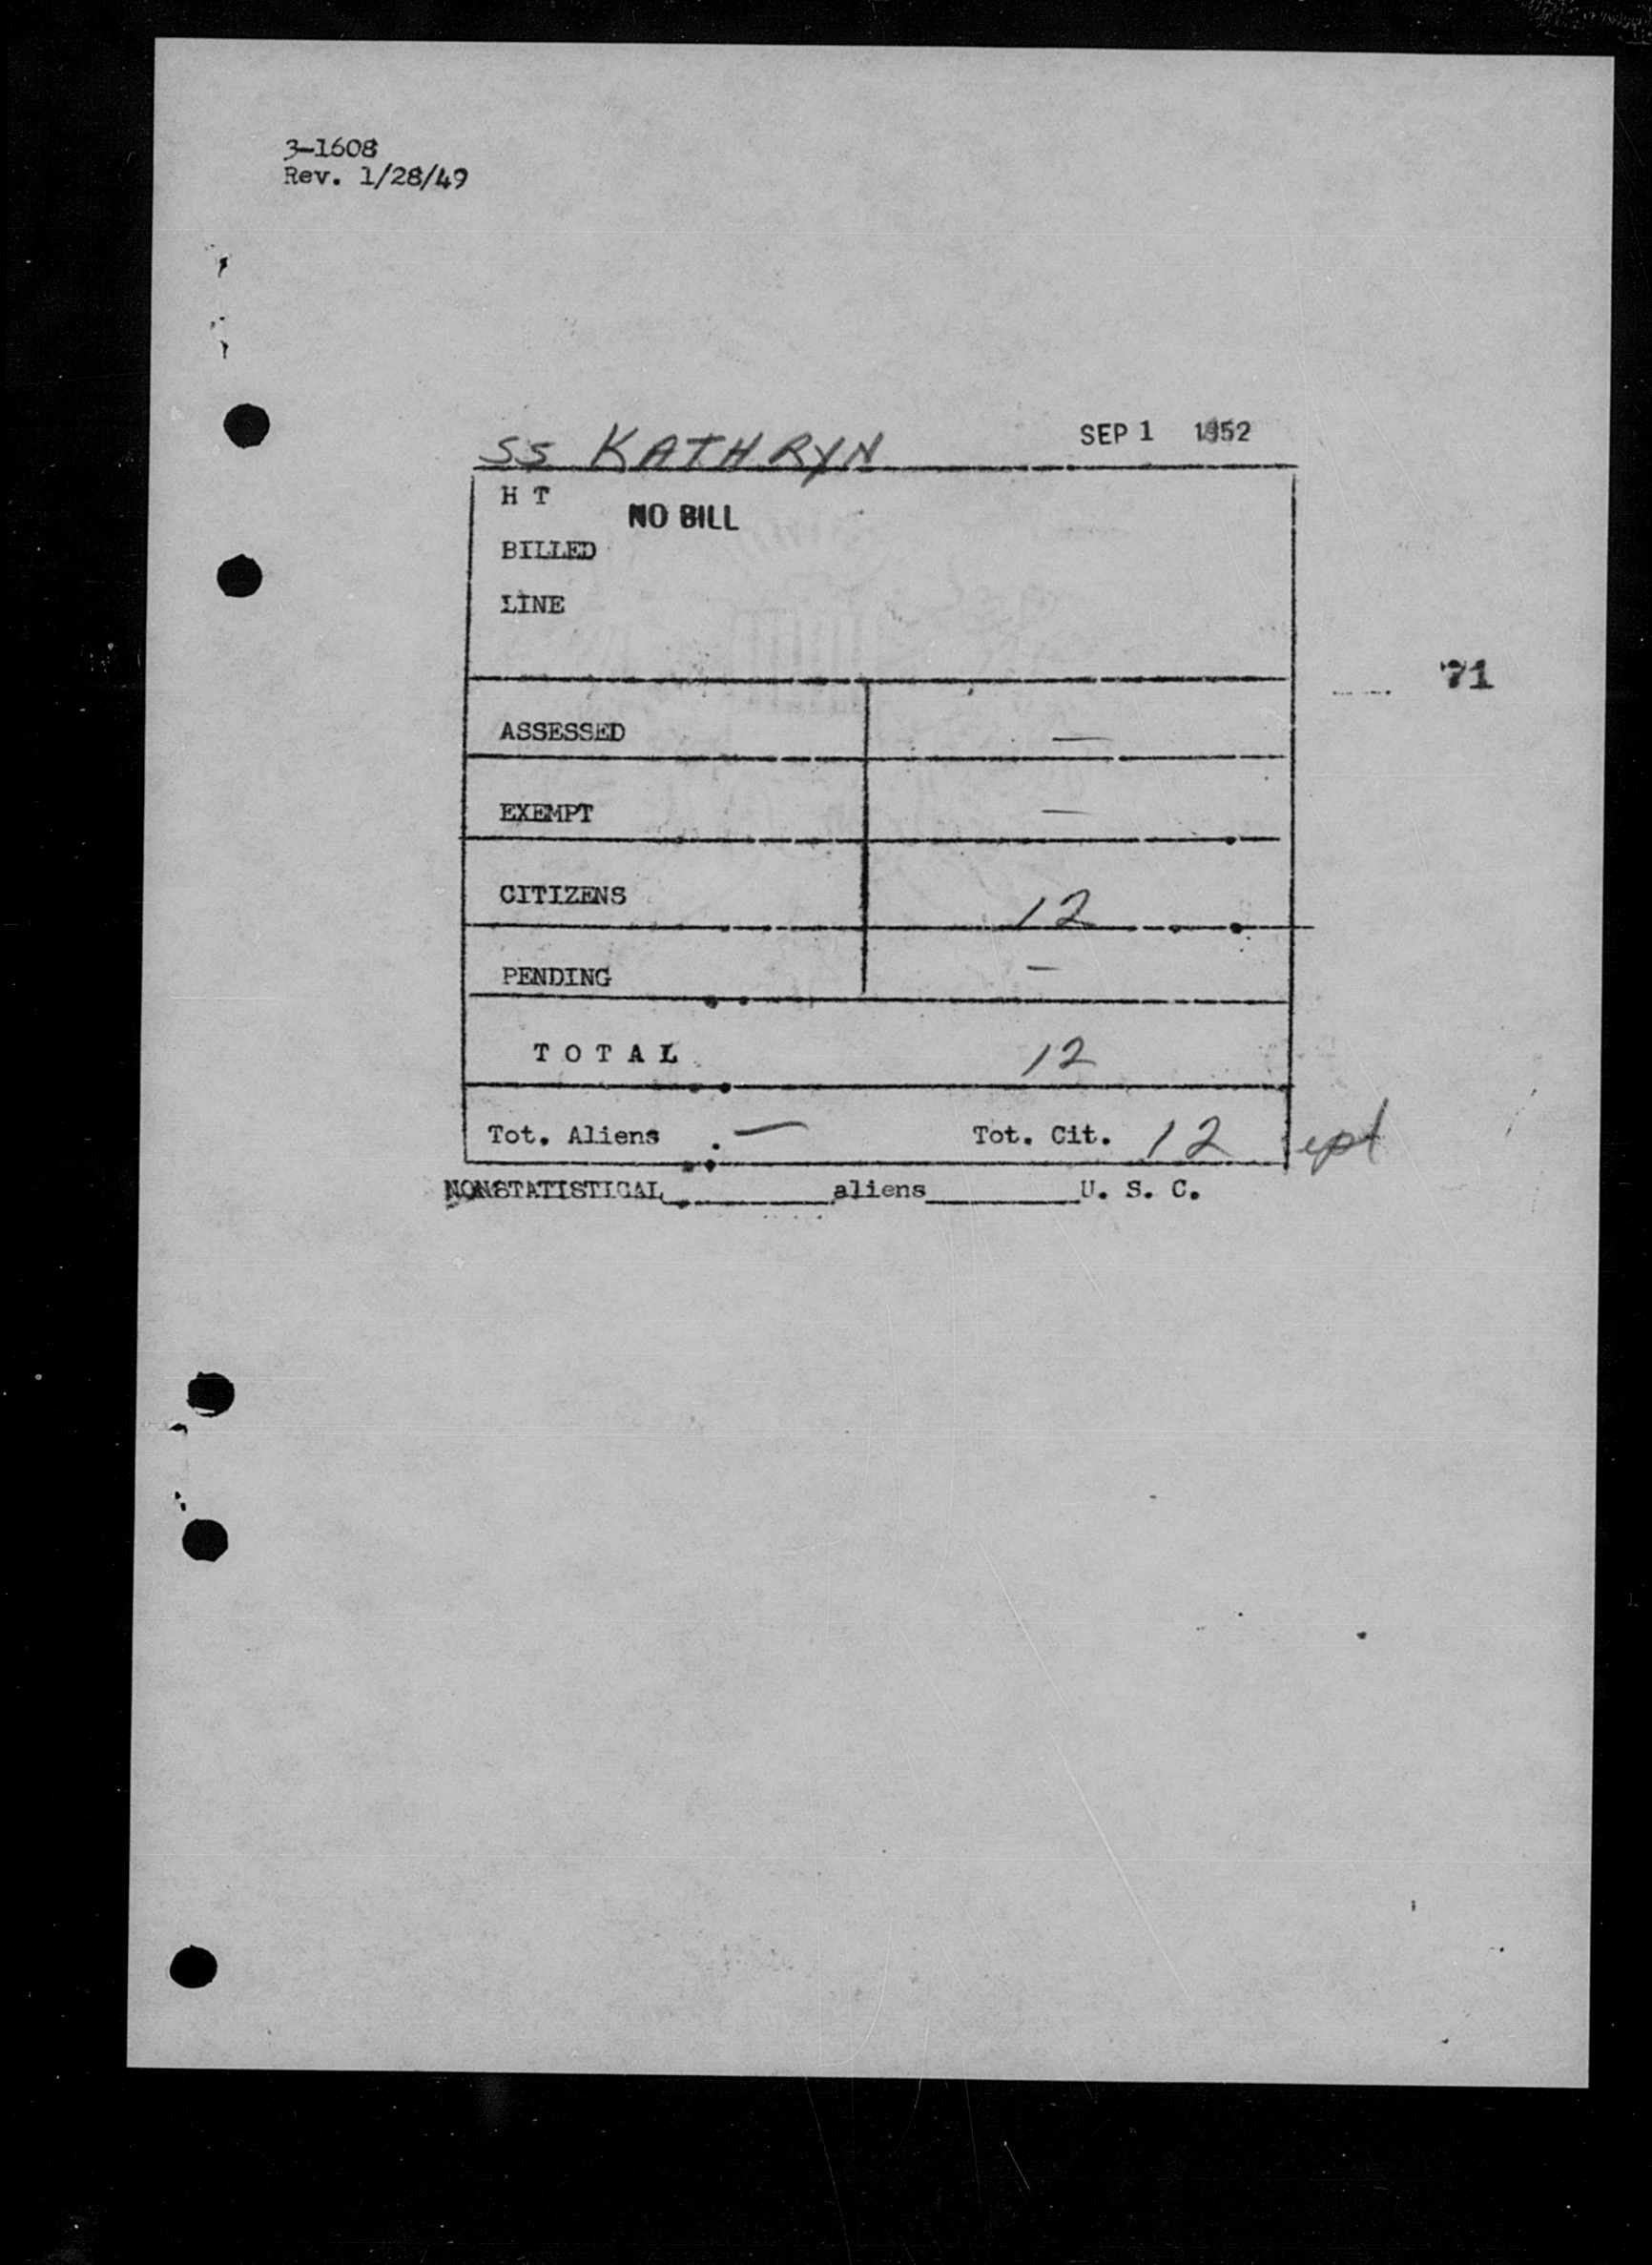 3-1608
Rev. 1/28/49
SS KATHRYN SEP 1 1952
H T
NO BILL
BILLED
LINE
71
ASSESSED —
EXEMPT —
CITIZENS 12
PENDING —
TOTAL 12
Tot. Aliens — Tot. Cit. 12
NONSTATISTICAL________aliens________U. S. C.